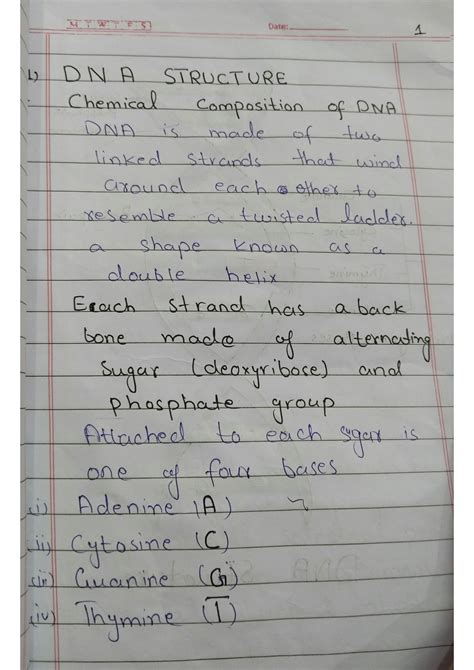 M T W T F S
Date:
1
1) DNA STRUCTURE
Chemical Composition of DNA
DNA is made of two
linked strands that wind
around each other to
resemble a twisted ladder.
a shape known as a
double helix
Each strand has a back
bone made of alternating
Sugar (deoxyribose) and
phosphate group
Attached to each sugar is
one of four bases
(i) Adenine (A)
(ii) Cytosine (C)
(iii) Guanine (G)
(iv) Thymine (T)